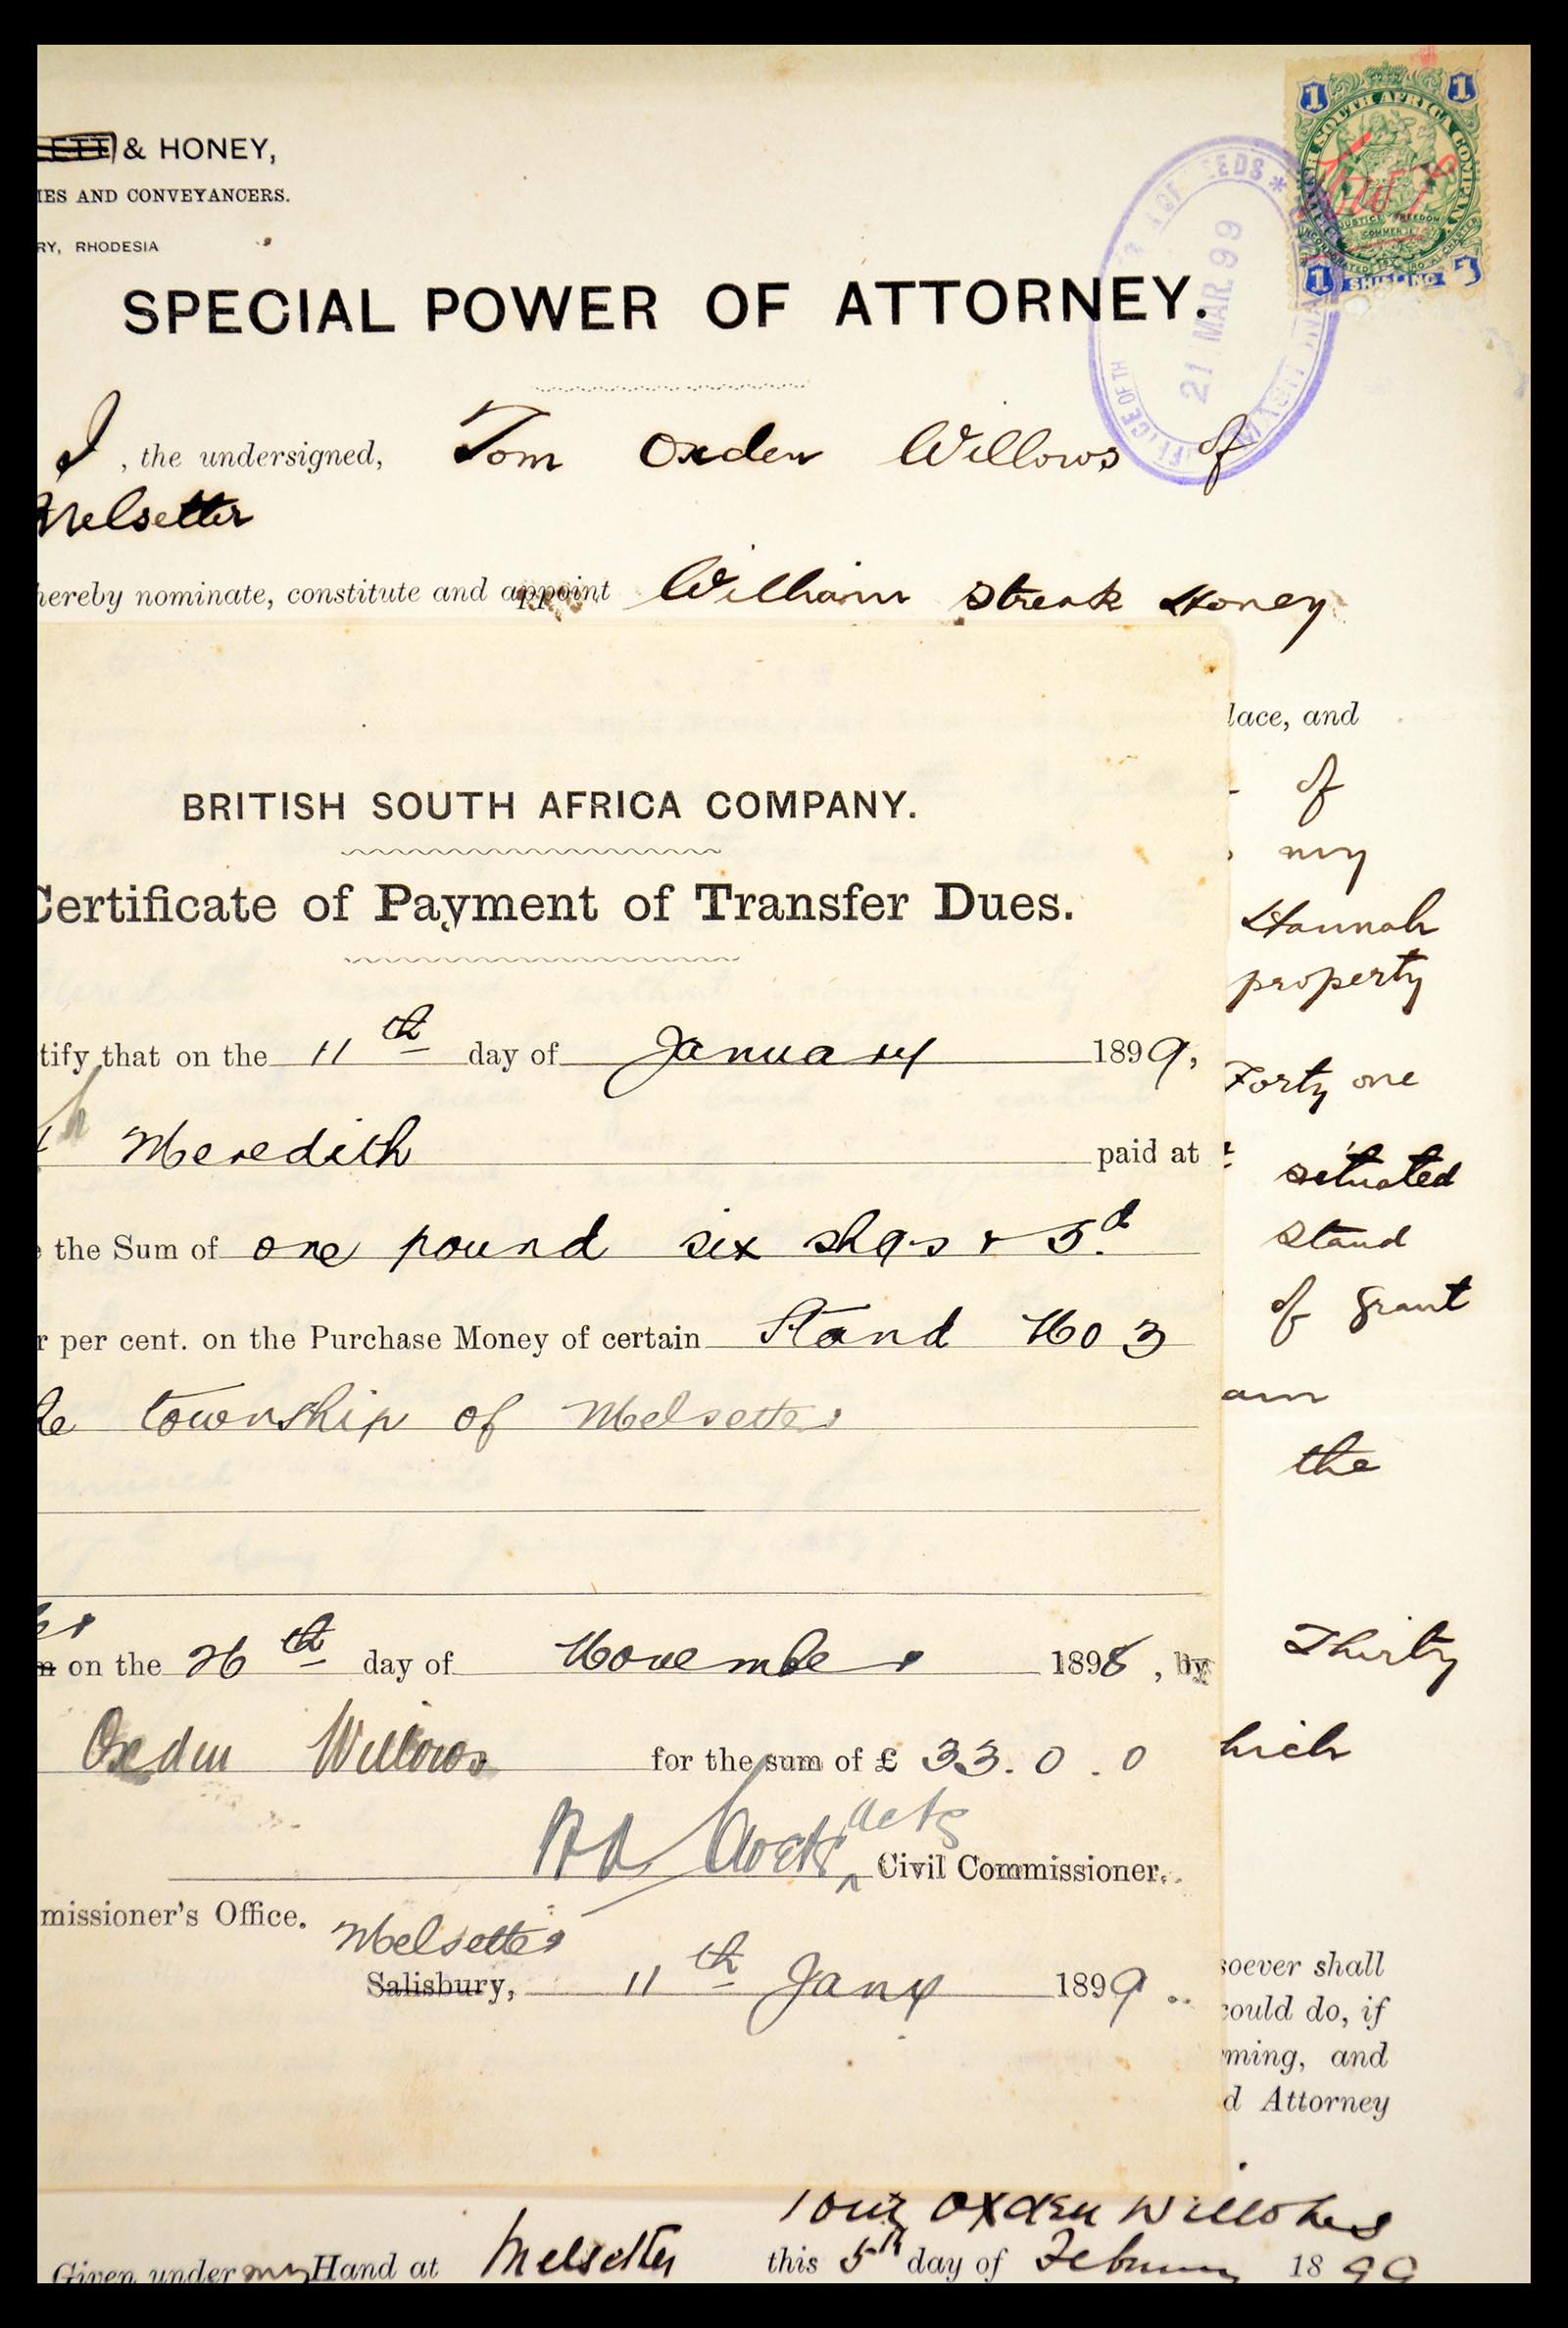 & HONEY,
IES AND CONVEYANCERS.
RY, RHODESIA
SPECIAL POWER OF ATTORNEY.
21 MAR. 99
1 1
SOUTH AFRICA COMPANY
JUSTICE FREEDOM
COMMERCE
INCORPORATED
1 SHILLING 1
I, the undersigned, Tom Oxden Willows of
Melsetter
hereby nominate, constitute and appoint William Streak Honey
lace, and
of
my
Hannah
property
Forty one
situated
Stand
of Grant
am
the
Thirty
hich
soever shall
could do, if
ming, and
d Attorney
BRITISH SOUTH AFRICA COMPANY.
Certificate of Payment of Transfer Dues.
tify that on the 11th day of January 1899,
h Meredith paid at
the Sum of one pound six shgs & 5d.
r per cent. on the Purchase Money of certain Stand No 3
township of Melsetter
on the 26th day of November 1898, by
Oxden Willows for the sum of £ 33.0.0
Actg
Civil Commissioner.
missioner's Office.
Melsetter
Salisbury, 11th Jany 1899
Tom Oxden Willows
Given under my Hand at Melsetter this 5th day of February 1899